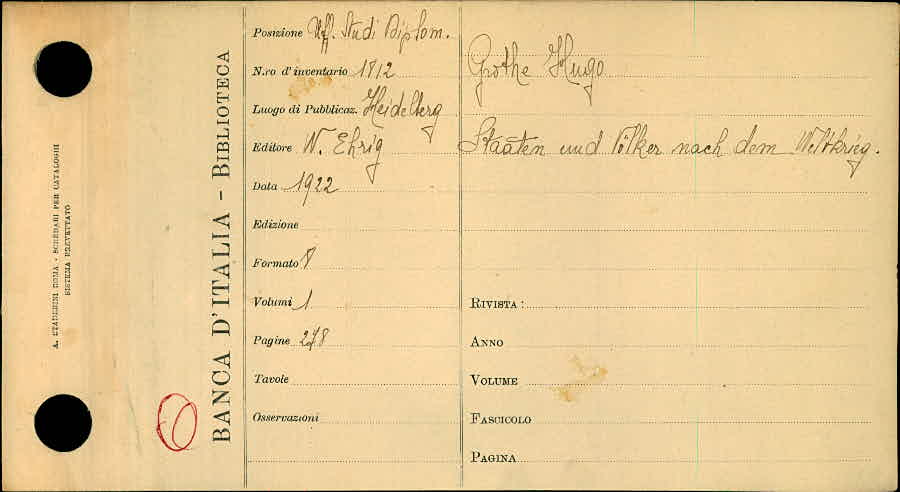 A. STADERINI ROMA - SCHEDARI PER CATALOGHI
SISTEMA BREVETTATO
BANCA D'ITALIA - BIBLIOTECA
Posizione Uff. Studi Diplom.
N.ro d'inventario 1812
Luogo di Pubblicaz. Heidelberg
Editore W. Ehrig
Data 1922
Edizione
Formato 8
Volumi 1
Pagine 278
Tavole
Osservazioni
Grothe Hugo
Staaten und Völker nach dem Weltkrieg.
RIVISTA :
ANNO
VOLUME
FASCICOLO
PAGINA